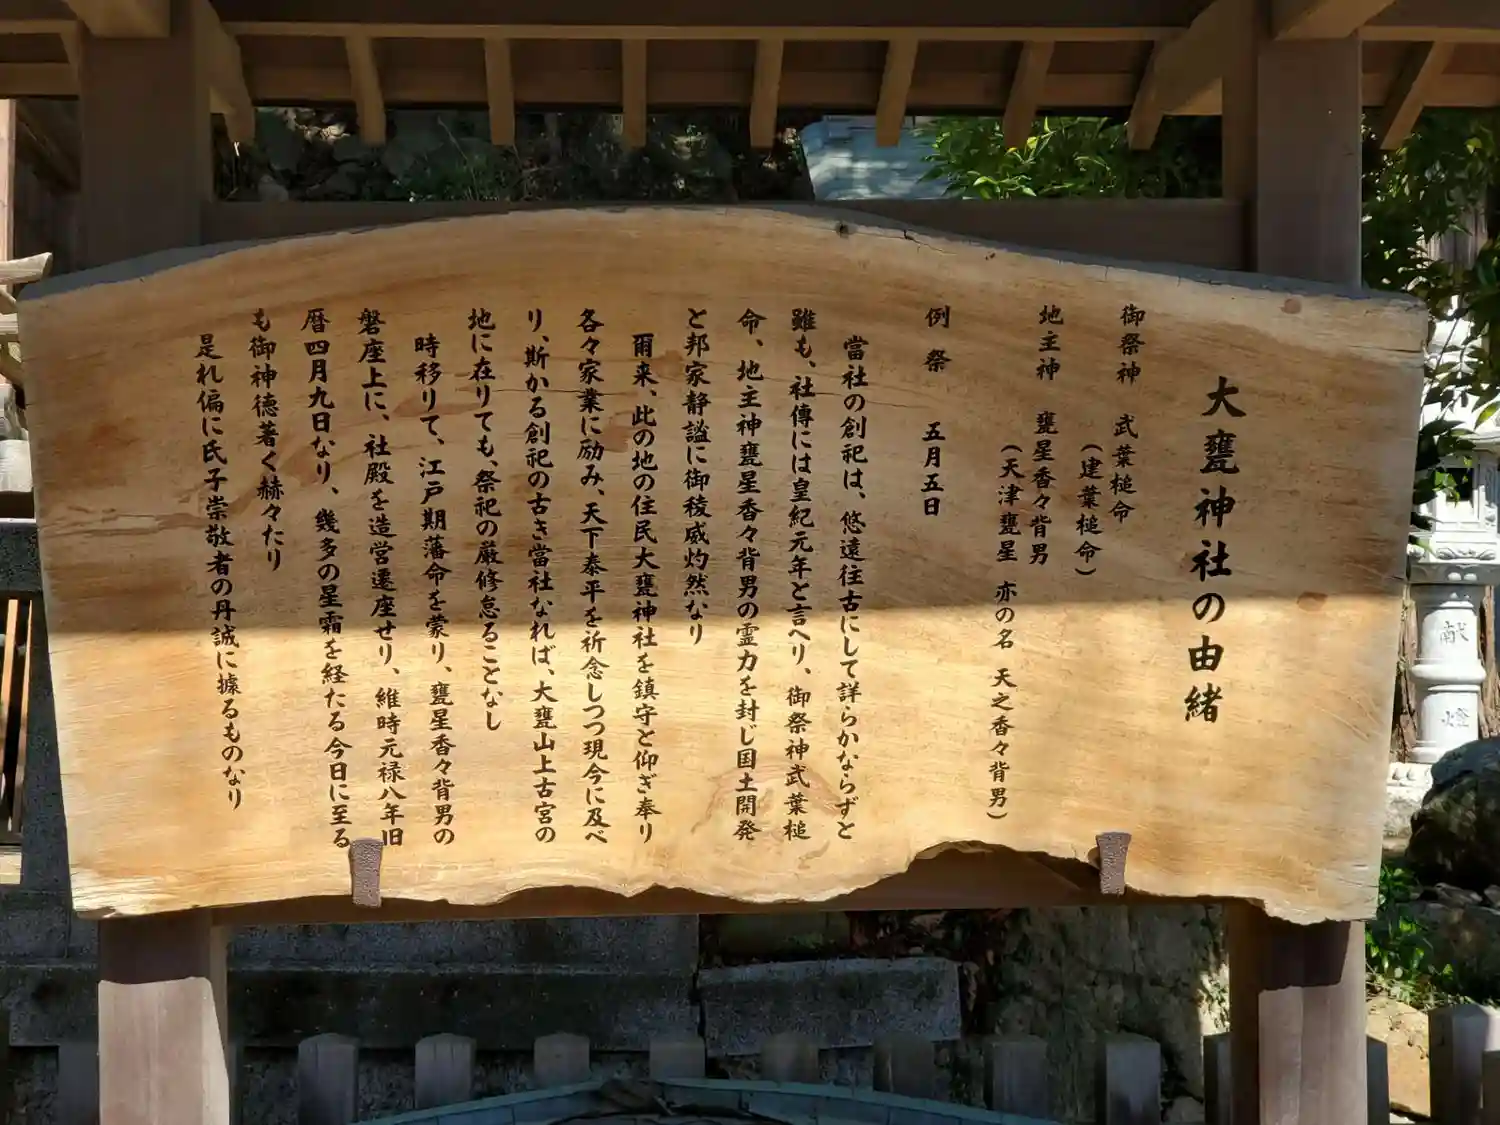 大甕神社の由緒
御祭神 武葉槌命
(建葉槌命)
地主神 甕星香々背男
(天津甕星 亦の名 天之香々背男)
例祭 五月五日
當社の創祀は、悠遠往古にして詳らかならずと
雖も、社傳には皇紀元年と言へり、御祭神武葉槌
命、地主神甕星香々背男の霊力を封じ国土開発
と邦家静謐に御稜威灼然なり
爾来、此の地の住民大甕神社を鎮守と仰ぎ奉り
各々家業に励み、天下泰平を祈念しつつ現今に及べ
り、斯かる創祀の古き當社なれば、大甕山上古宮の
地に在りても、祭祀の厳修怠ることなし
時移りて、江戸期藩命を蒙り、甕星香々背男の
磐座上に、社殿を造営遷座せり、維時元禄八年旧
暦四月九日なり、幾多の星霜を経たる今日に至る
も御神徳著く赫々たり
是れ偏に氏子崇敬者の丹誠に據るものなり
献
燈